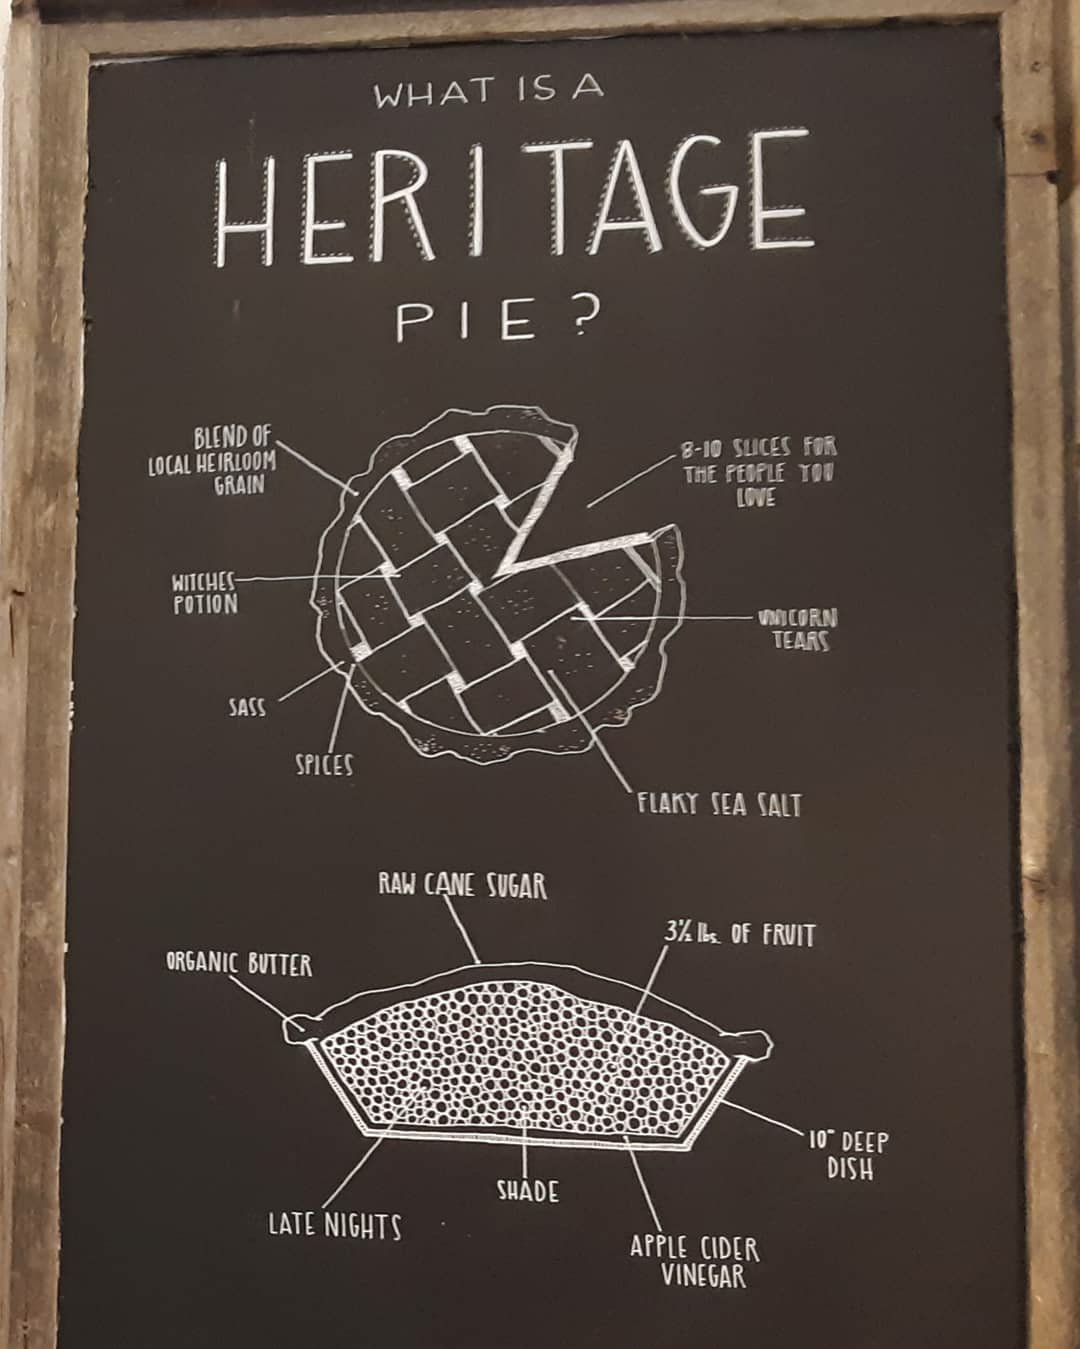 WHAT IS A
HERITAGE
PIE?
BLEND OF
LOCAL HEIRLOOM
GRAIN
8-10 SLICES FOR
THE PEOPLE YOU
LOVE
WITCHES
POTION
UNICORN
TEARS
SASS
SPICES
FLAKY SEA SALT
RAW CANE SUGAR
3½ lbs. OF FRUIT
ORGANIC BUTTER
10" DEEP
DISH
SHADE
LATE NIGHTS
APPLE CIDER
VINEGAR